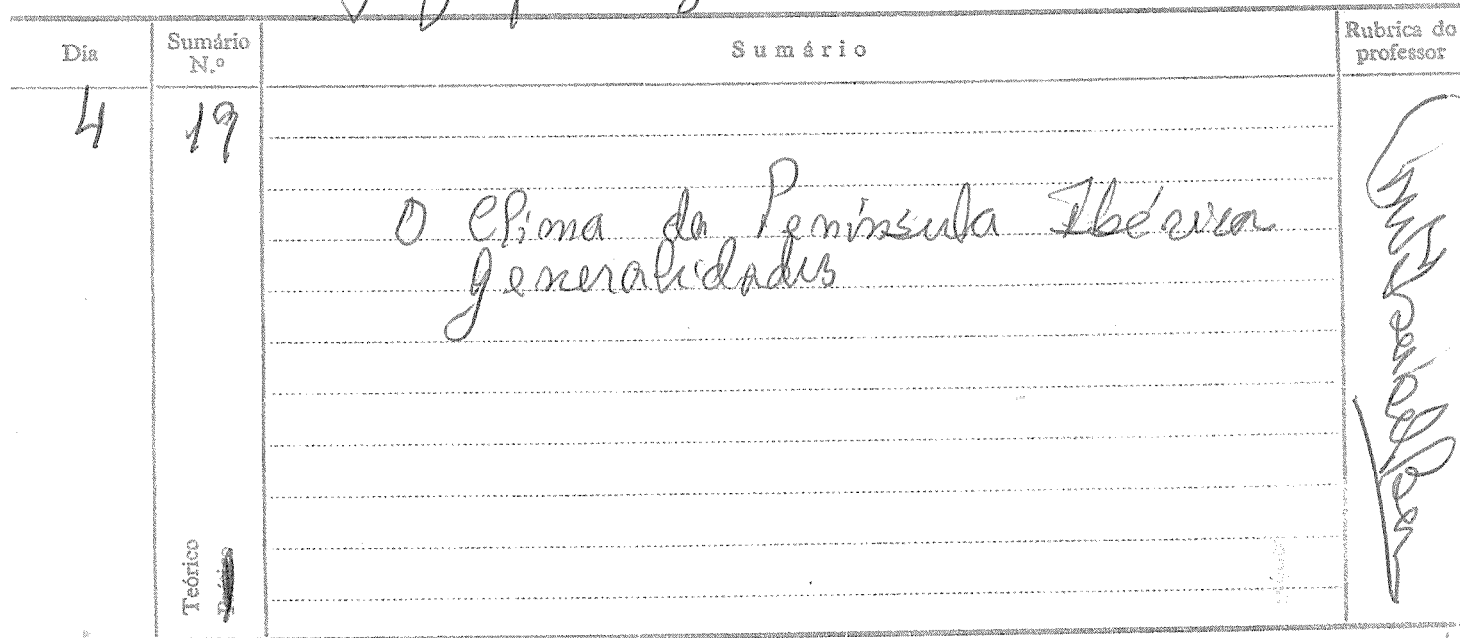 Dia
Sumário N.º
Sumário
Rubrica do professor
4
19
O Clima da Península Ibérica
generalidades
Teórico